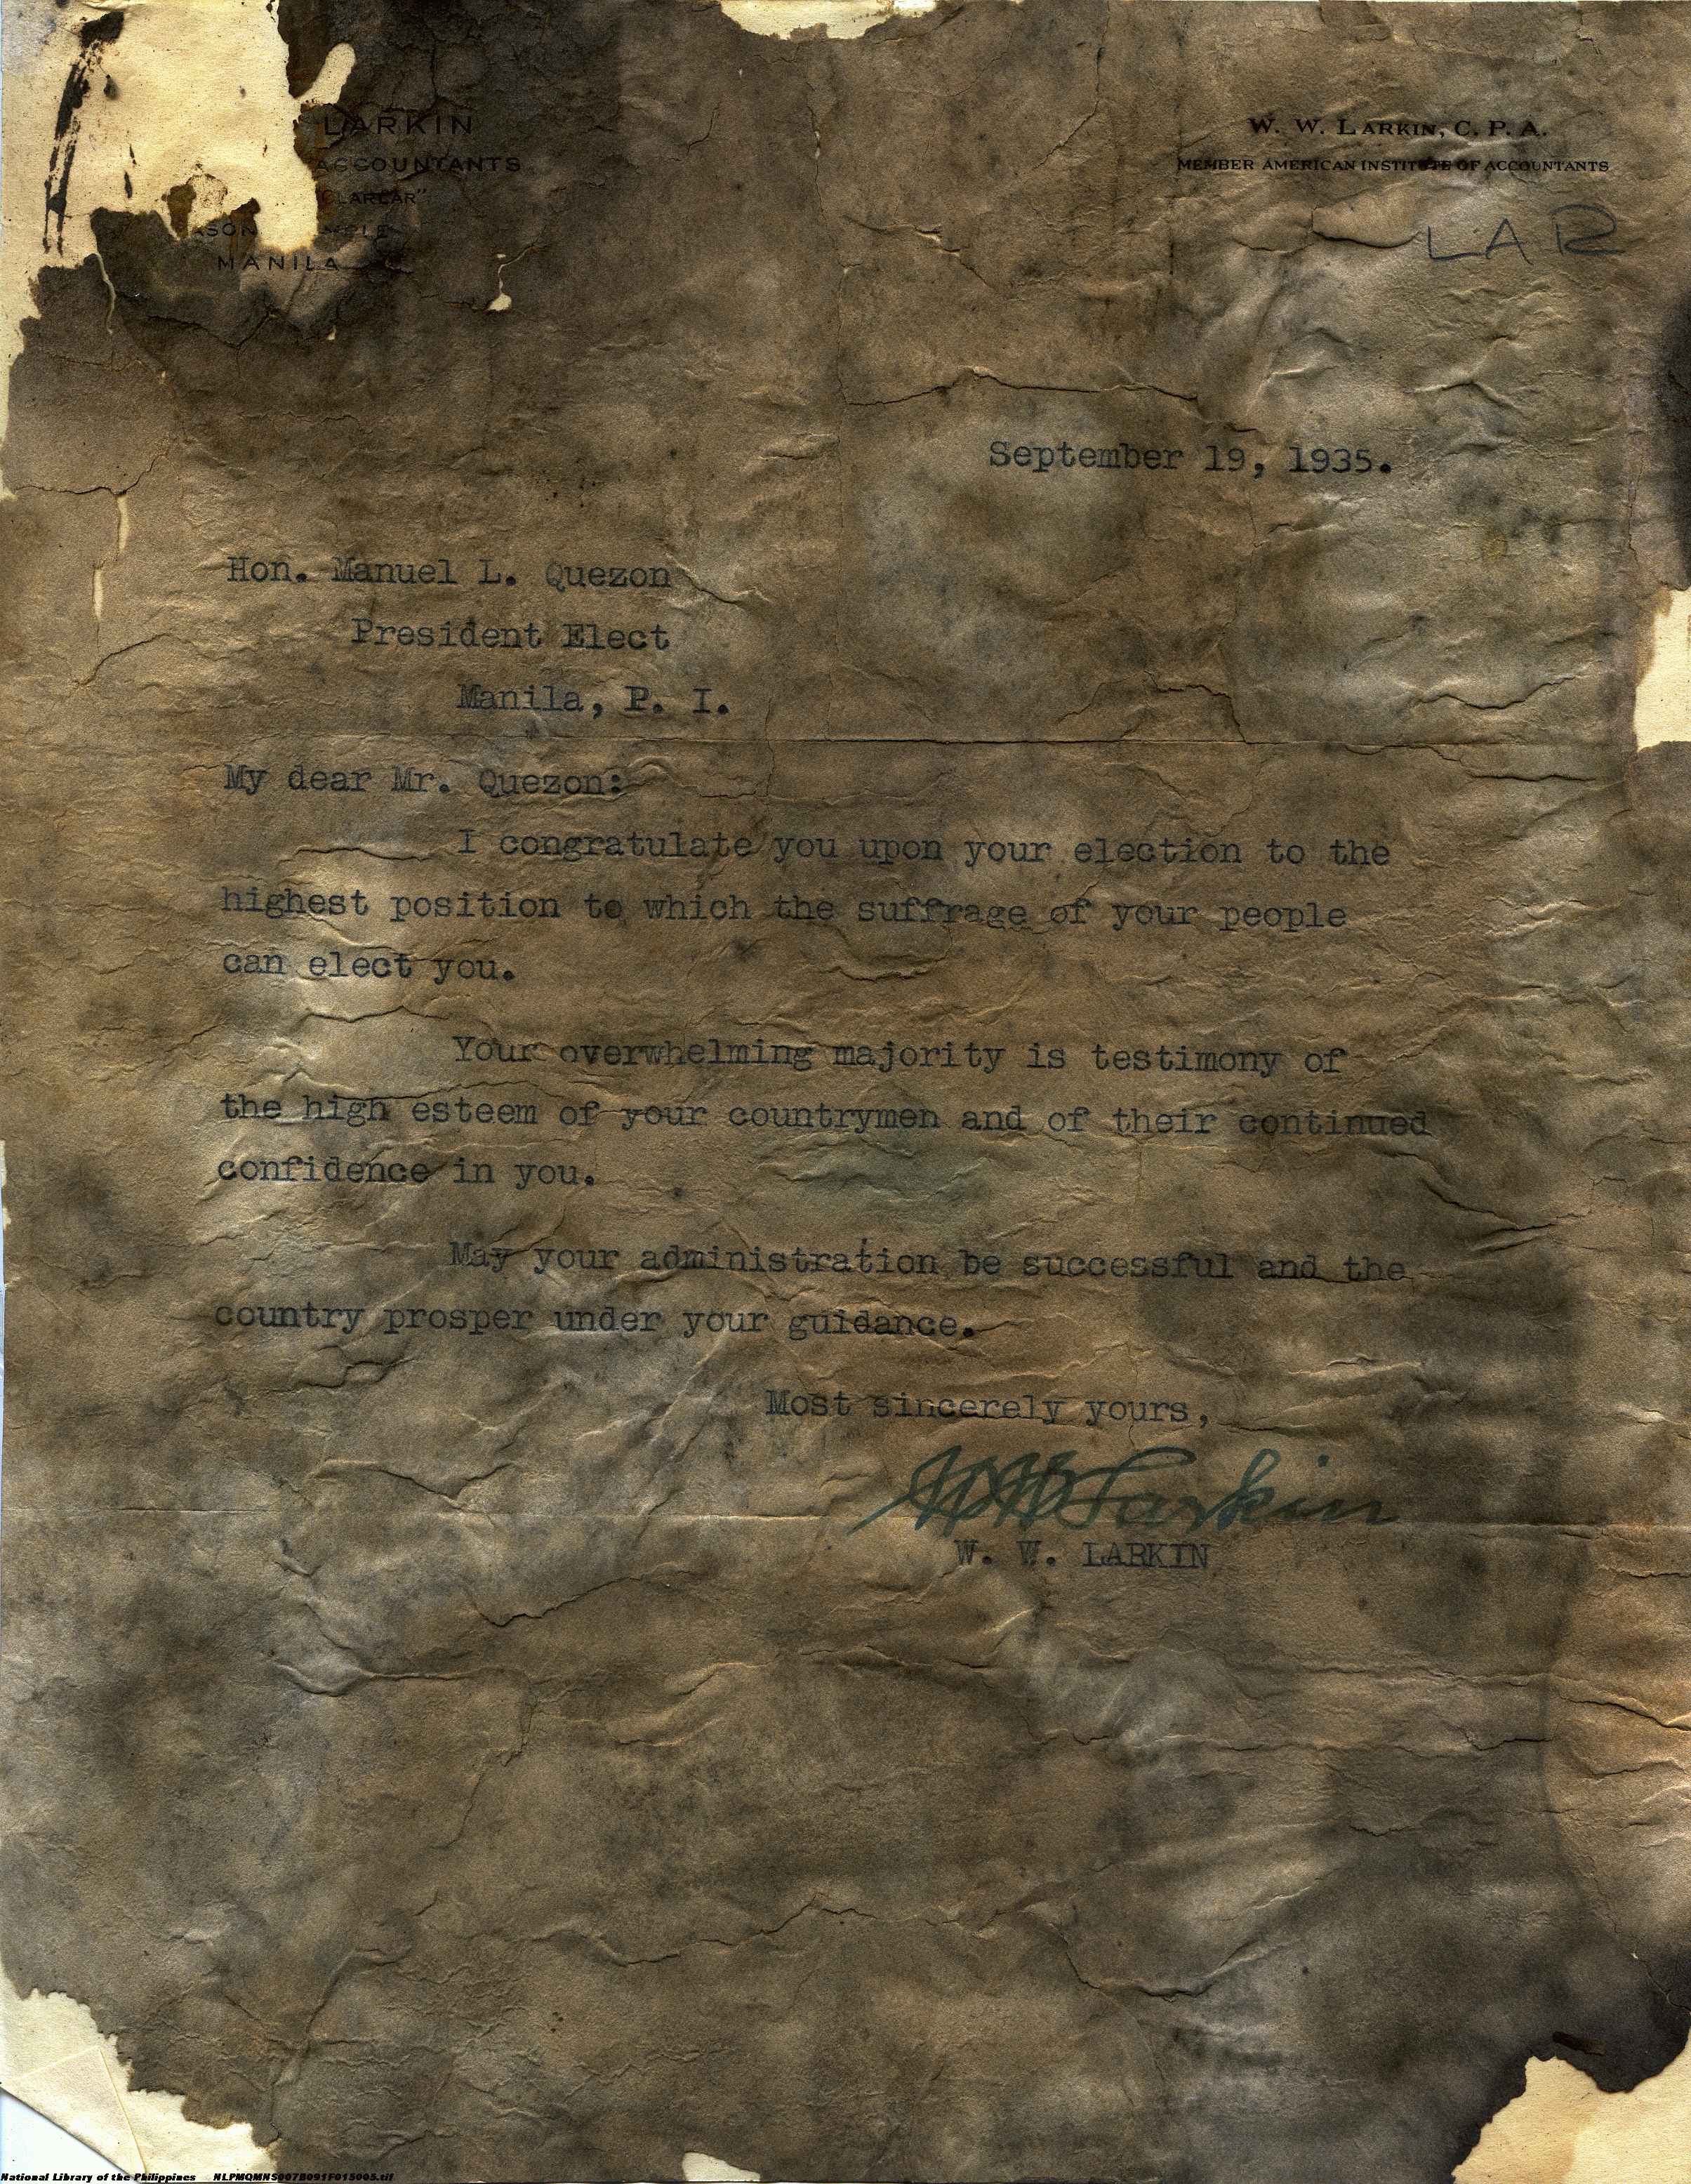 LARKIN
ACCOUNTANTS
"CLARLAR"
MANILA
W. W. LARKIN, C. P. A.
MEMBER AMERICAN INSTITUTE OF ACCOUNTANTS
LAR
September 19, 1935.
Hon. Manuel L. Quezon
President Elect
Manila, P. I.
My dear Mr. Quezon:
I congratulate you upon your election to the
highest position to which the suffrage of your people
can elect you.
Your overwhelming majority is testimony of
the high esteem of your countrymen and of their continued
confidence in you.
May your administration be successful and the
country prosper under your guidance.
Most sincerely yours,
WW Larkin
W. W. LARKIN
National Library of the Philippines NLPMQMNS007B091F015005.tif